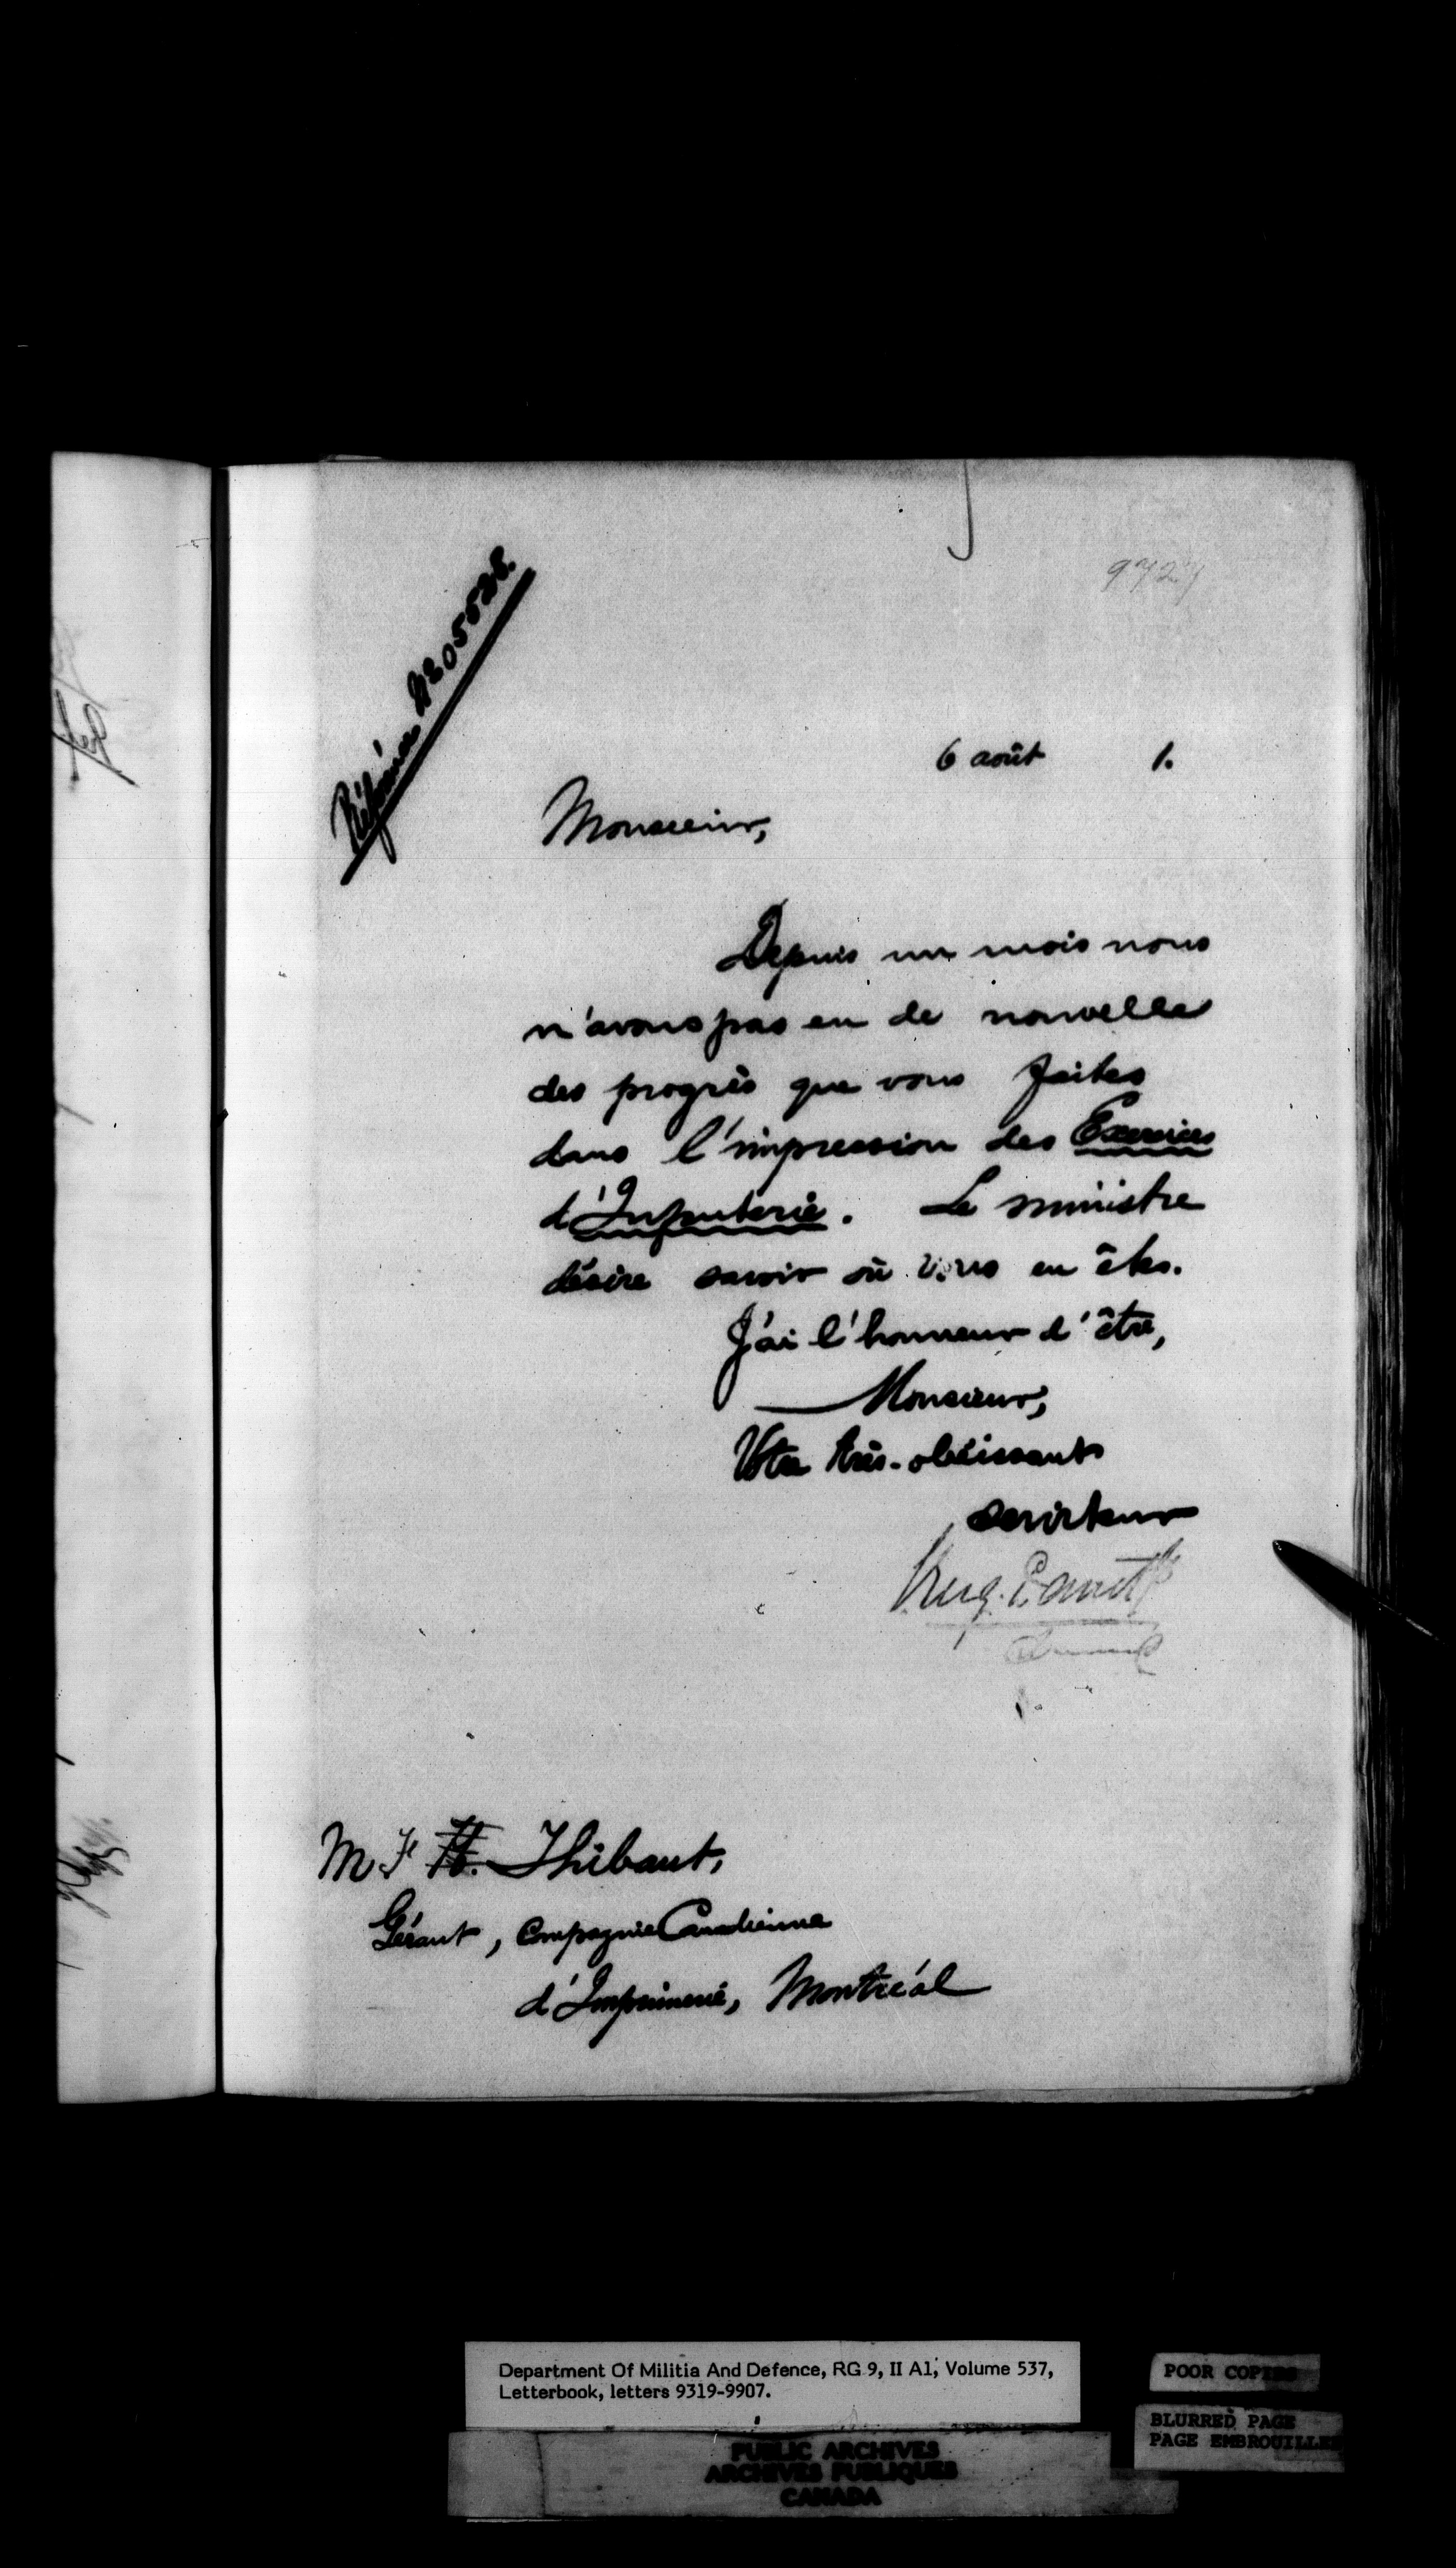 9727
6 août 1.
Monsieur,
Depuis un mois nous
n'avons pas eu de nouvelles
des progrès que vous faites
dans l'impression des Exercices
d'Infanterie. Le ministre
désire savoir où vous en êtes.
J'ai l'honneur d'être,
Monsieur,
Votre très-obéissant
serviteur
M. F Thibault,
Gérant, Compagnie Canadienne
d'Imprimerie, Montréal
Department Of Militia And Defence, RG 9, II A1, Volume 537,
Letterbook, letters 9319-9907.
POOR COPIES
BLURRED PAGE
PAGE EMBROUILLEE
PUBLIC ARCHIVES
ARCHIVES PUBLIQUES
CANADA